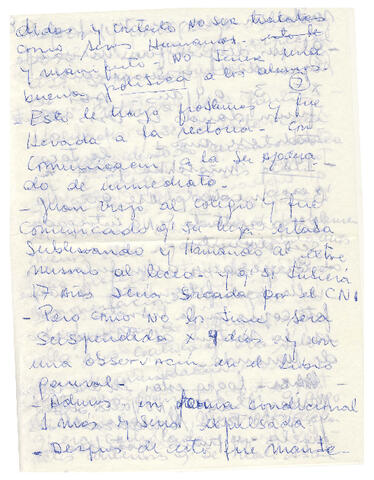 didas y contesto No ser tratados
como Seres Humanos.
y manifesto No tener una
buena política a los alumnos.
7
Esto le trajo problemas y fue
llevada a la rectoria - Con
Comunicación a la Sra Apodera
do de inmediato.
- Juan viajo al colegio y fue
Comunicado q su hija estaba
Sublevando y llamando al extre
mismo al liceo y q si tubiera
17 Años Seria Sacada por el CNI
- Pero como No los tiene sera
Suspendida x 4 días y con
una observación en el libro
personal -
- Ademas en forma Condicional
1 mas y Seria expulsada
- Despues de esto fue manda-